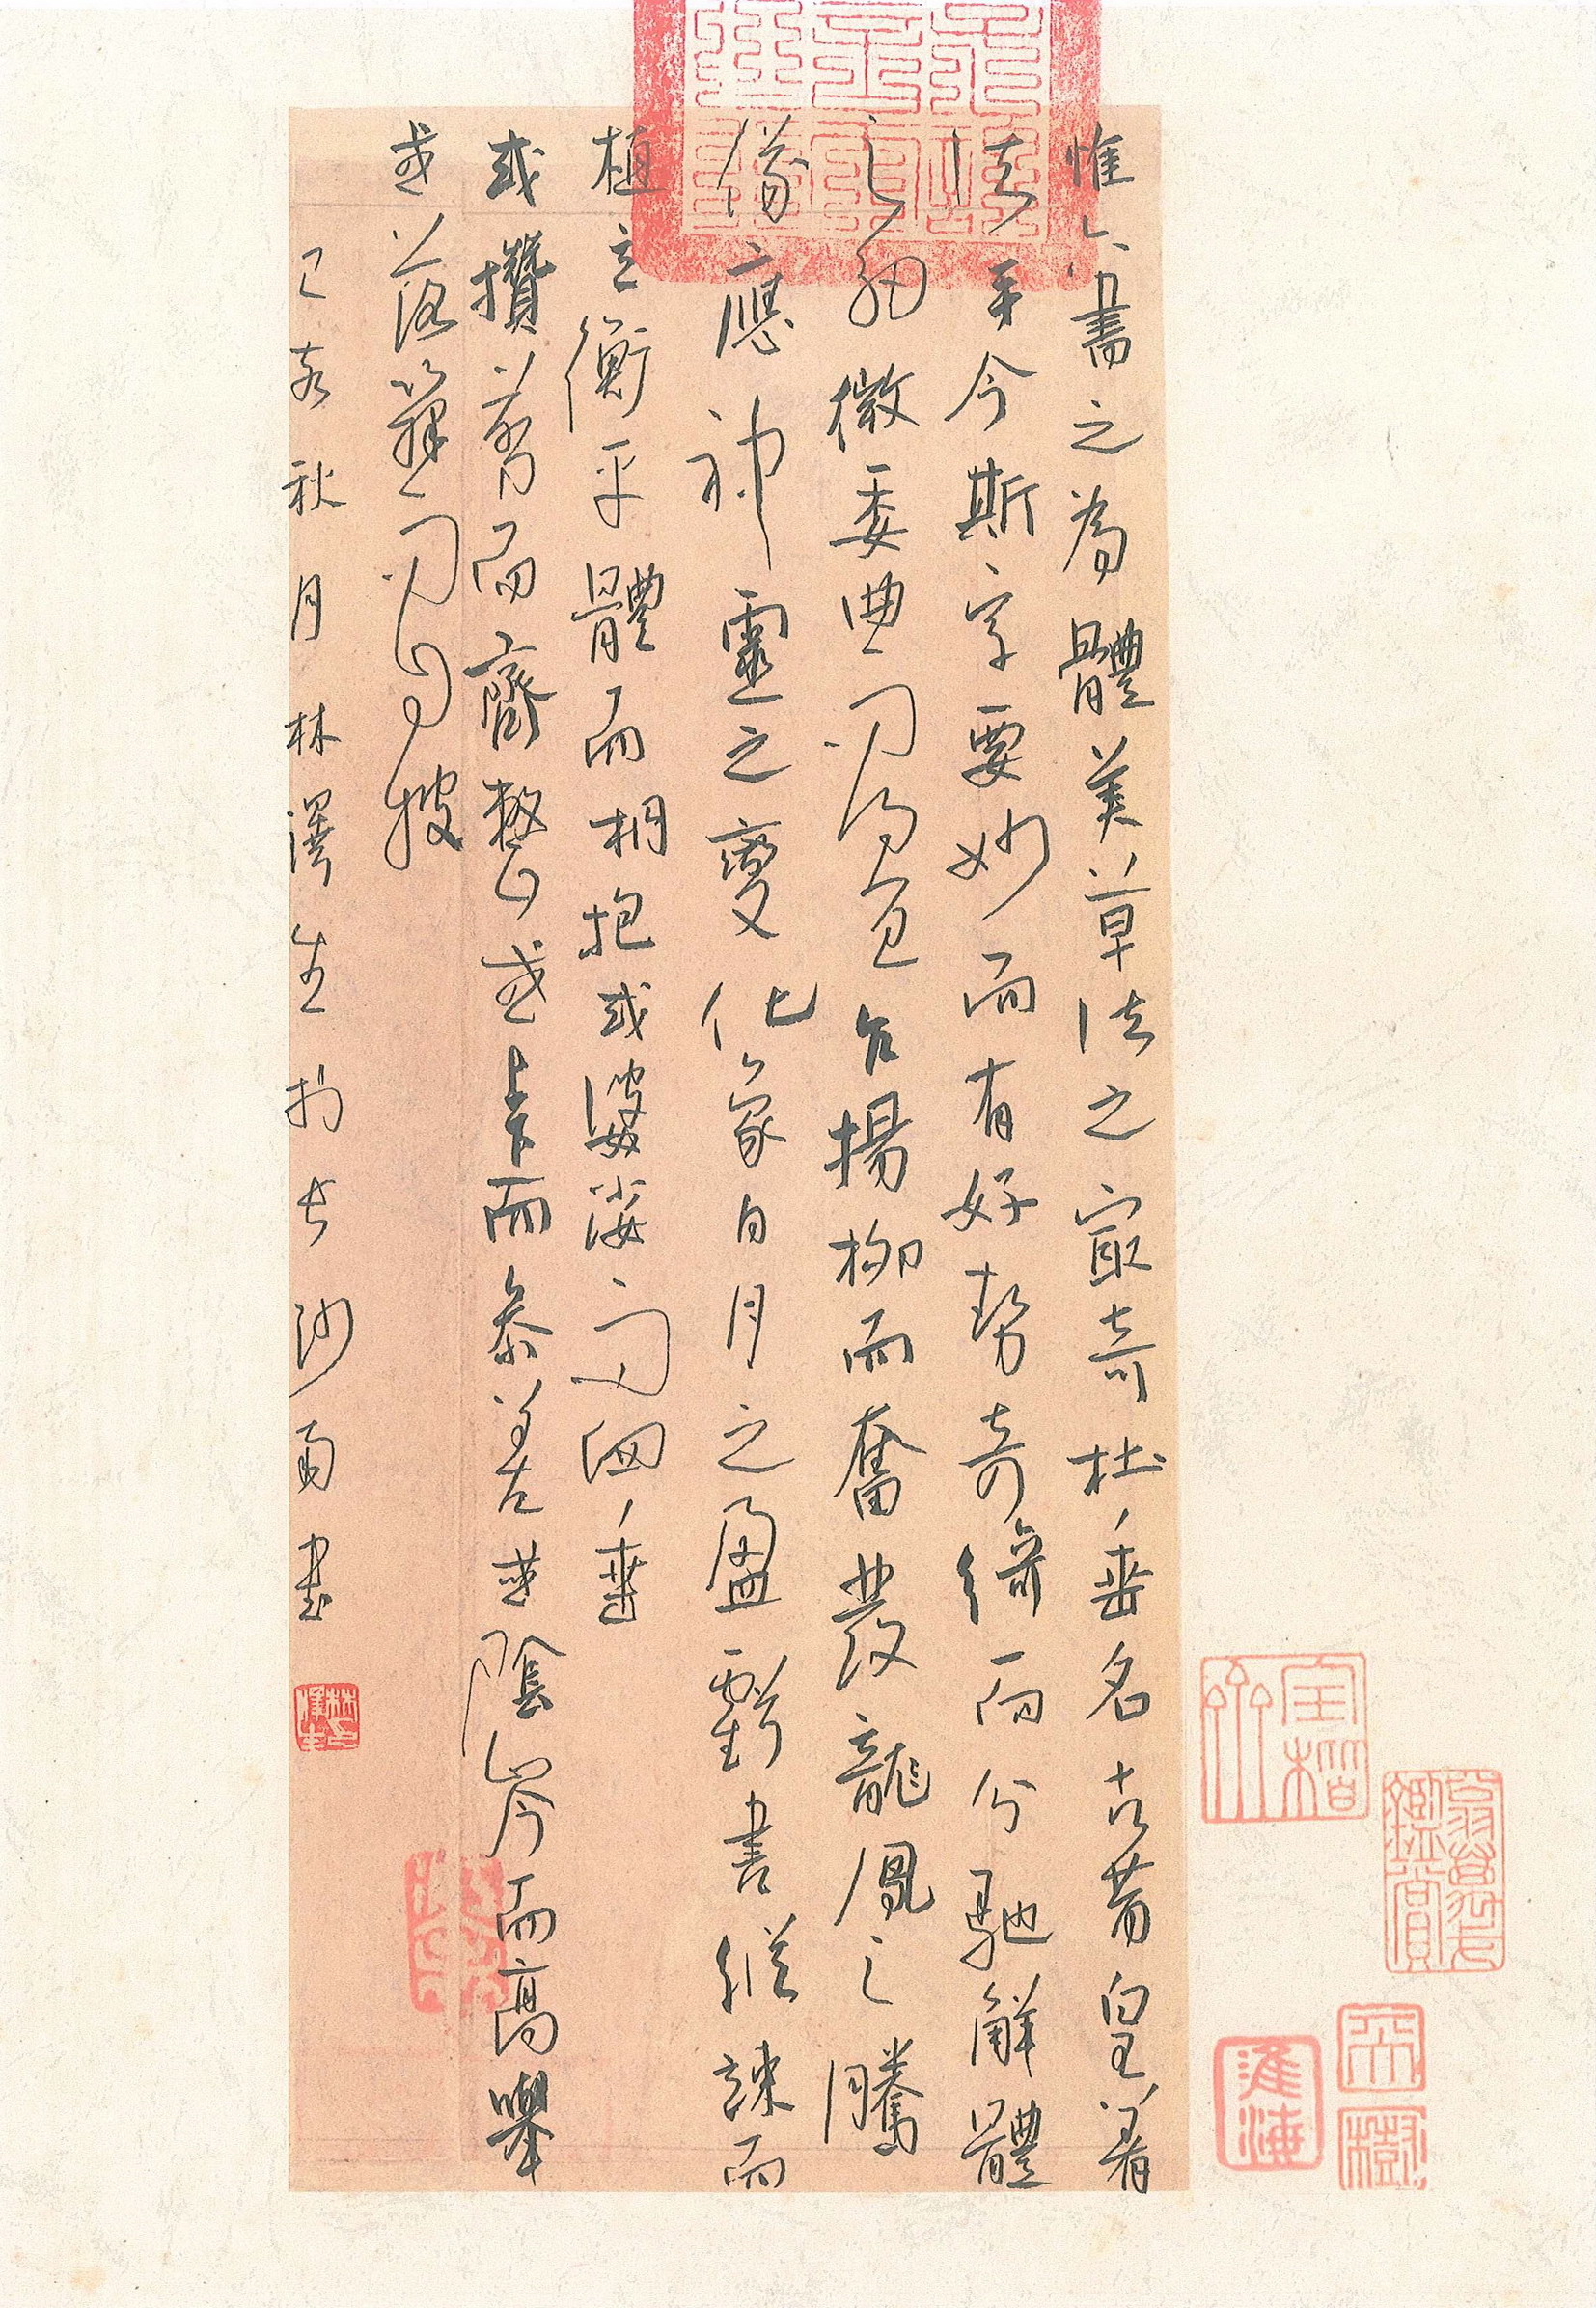 惟六書之為體美草法之最奇杜垂名古昔皇著
法乎今斯字要妙而有好勢奇綺而分馳解體
之細微委曲 而奮發龍鳳之騰
儀應神靈之變化象日月之盈虧書縱竦而
植立衡平體而相抱或婆娑 四垂
或攢剪而齊整或上下而參差或陰岑而高舉
或落籜 披
己亥秋月林澤生於長沙南書